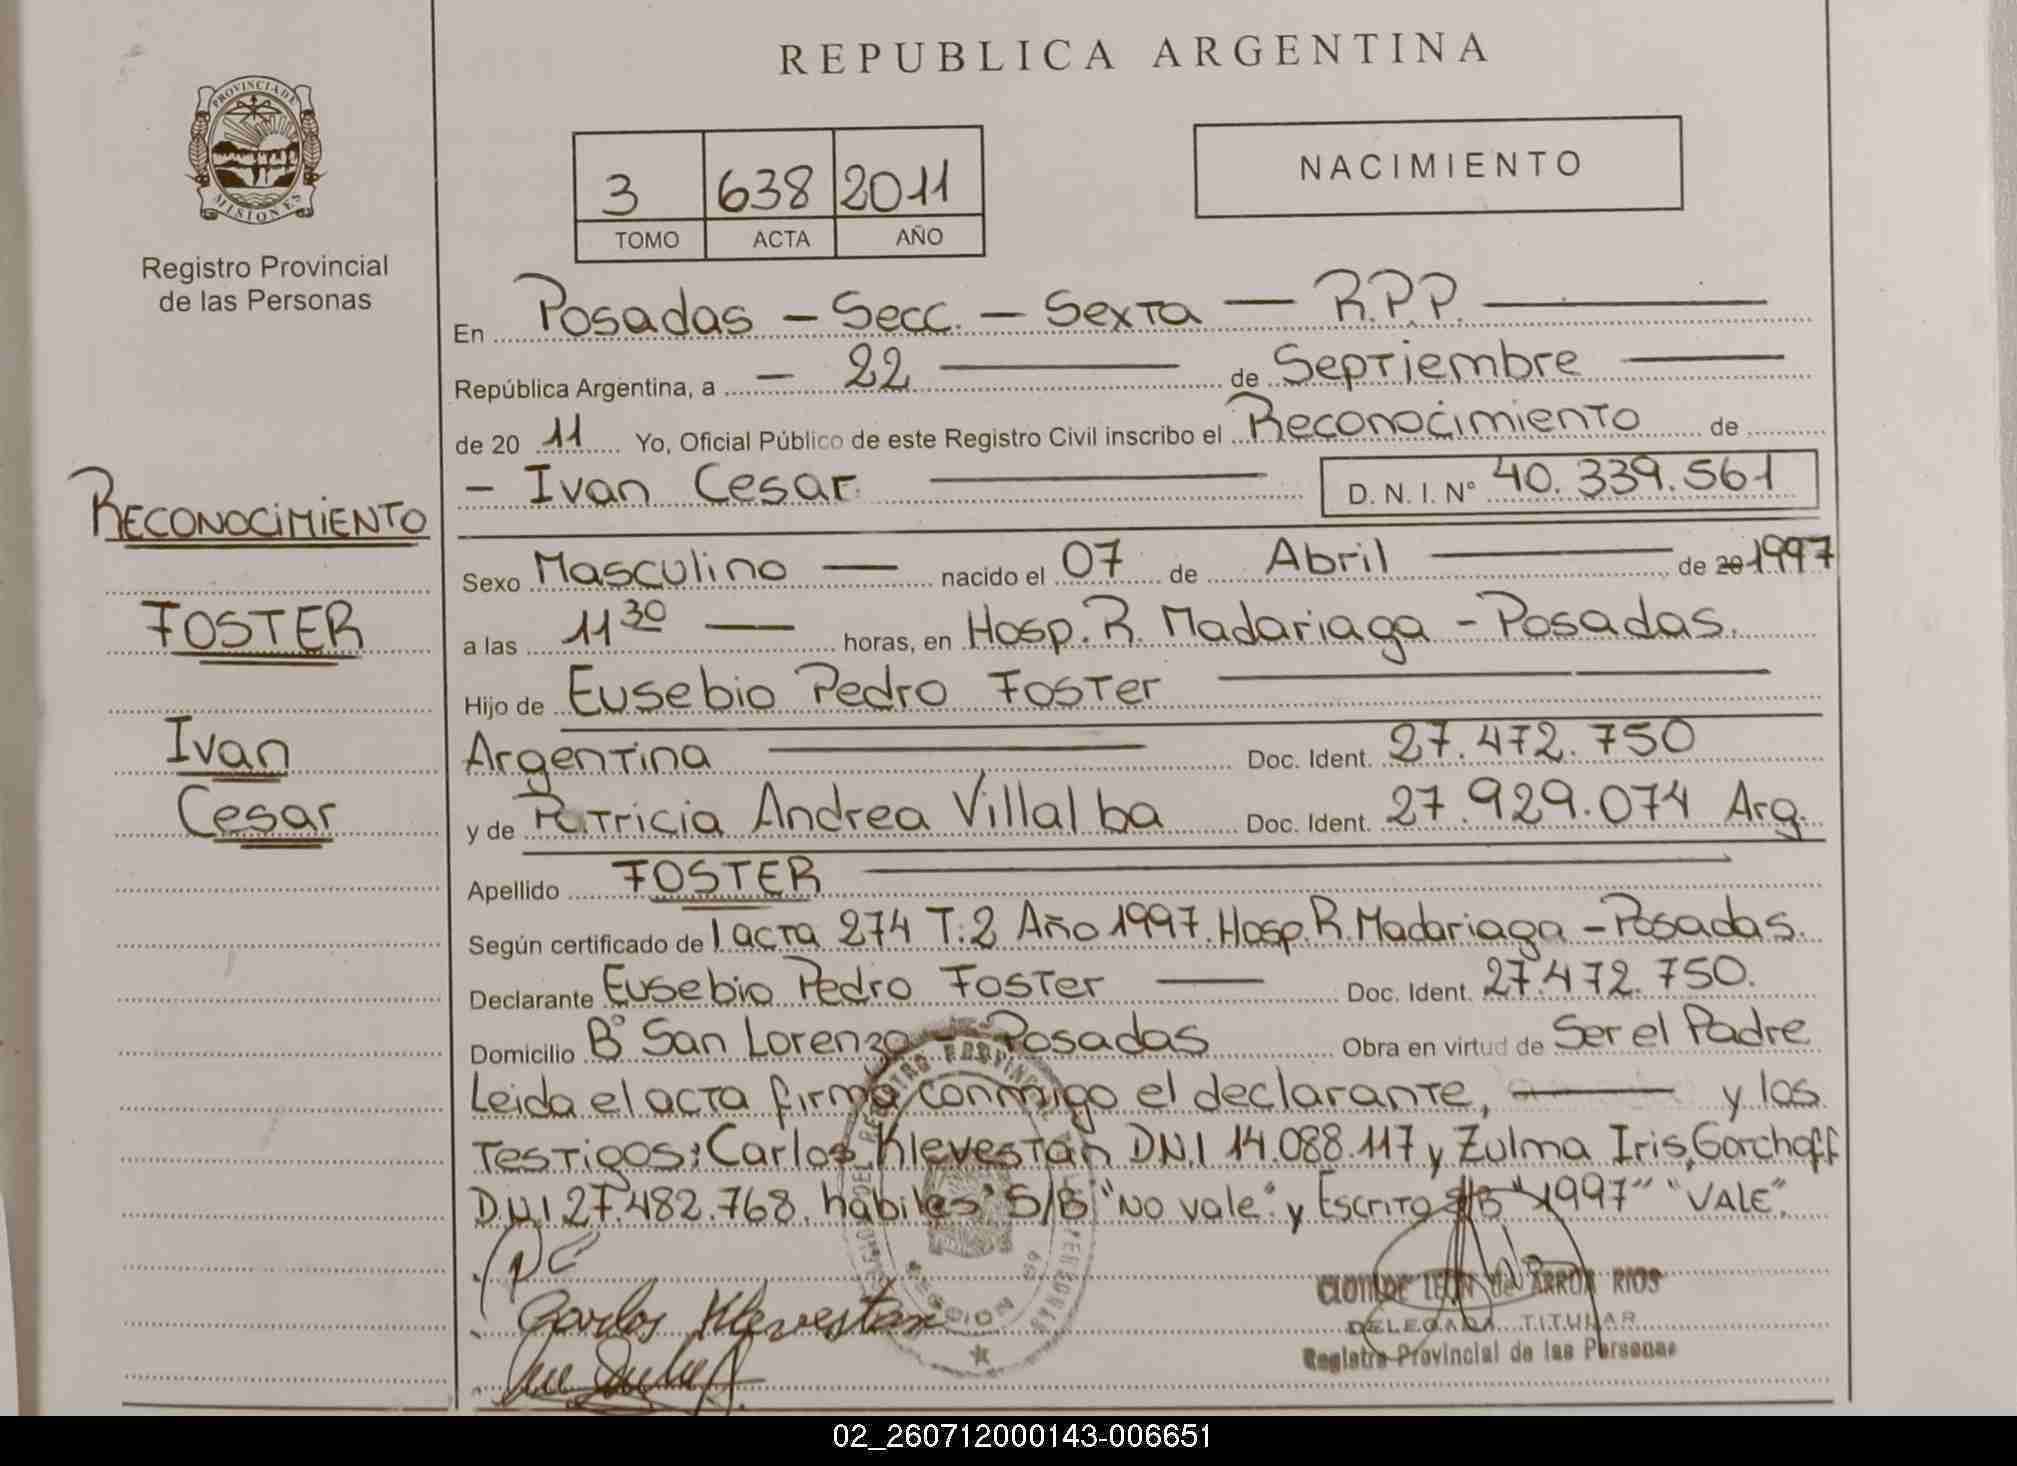 REPUBLICA ARGENTINA
PROVINCIA DE
MISIONES
Registro Provincial
de las Personas
NACIMIENTO
3 638 2011
TOMO ACTA AÑO
En Posadas - Secc. - Sexta — R.P.P. —
República Argentina, a - 22 — de Septiembre —
de 20 11 Yo, Oficial Público de este Registro Civil inscribo el Reconocimiento de
- Ivan Cesar — D. N. I. N° 40.339.561
RECONOCIMIENTO
FOSTER
Ivan
Cesar
Sexo Masculino — nacido el 07 de Abril — de 20 1997
a las 11 30 — horas, en Hosp. R. Madariaga - Posadas.
Hijo de Eusebio Pedro Foster —
Argentina — Doc. Ident. 27.472.750
y de Patricia Andrea Villalba Doc. Ident. 27.929.074 Arg.
Apellido FOSTER —
Según certificado de 1 acta 274 T.2 Año 1997. Hosp. R. Madariaga - Posadas.
Declarante Eusebio Pedro Foster — Doc. Ident. 27.472.750.
Domicilio B° San Lorenzo - Posadas Obra en virtud de Ser el Padre
Leida el acta firma conmigo el declarante, — y los
Testigos: Carlos Klevestan DN.I 14.088.117 y Zulma Iris Gorchoff
D.N.I 27.482.768. habiles S/B "No vale" y Escrito S/B "1997" "VALE".
Carlos Klevestan
LEON de ARROA RIOS
DELEGADA TITULAR
Registro Provincial de las Personas
02_260712000143-006651